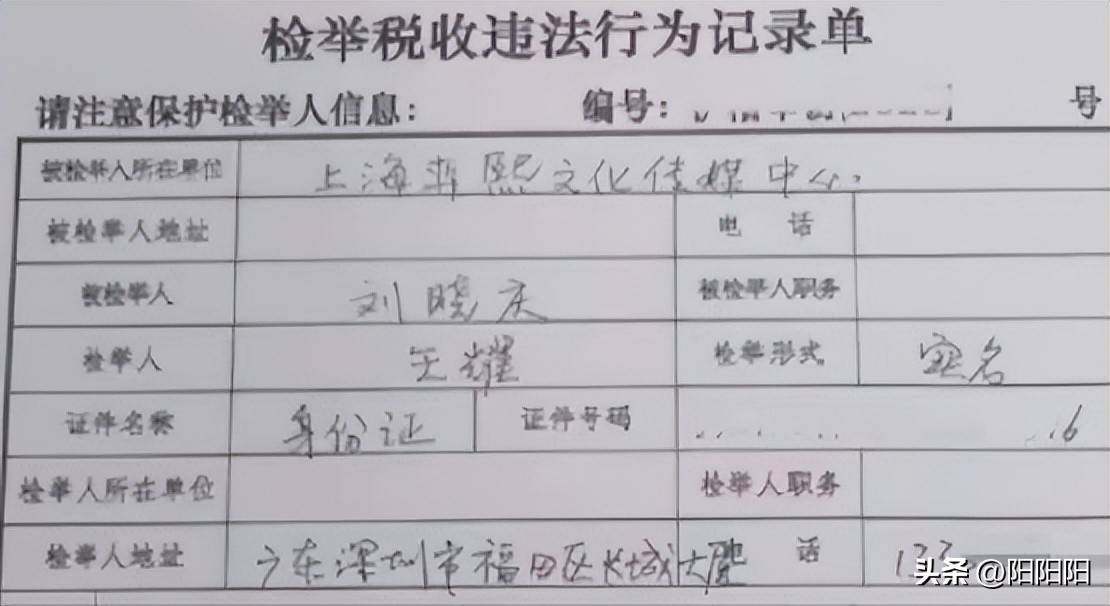 检举税收违法行为记录单
请注意保护检举人信息: 编号: 号
被检举人所在单位 上海 熙文化传媒中心.
被检举人地址 电话
被检举人 刘晓庆 被检举人职务
检举人 王耀 检举形式 实名
证件名称 身份证 证件号码 16
检举人所在单位 检举人职务
检举人地址 广东深圳市福田区长城大厦 话 133
头条 @阳阳阳